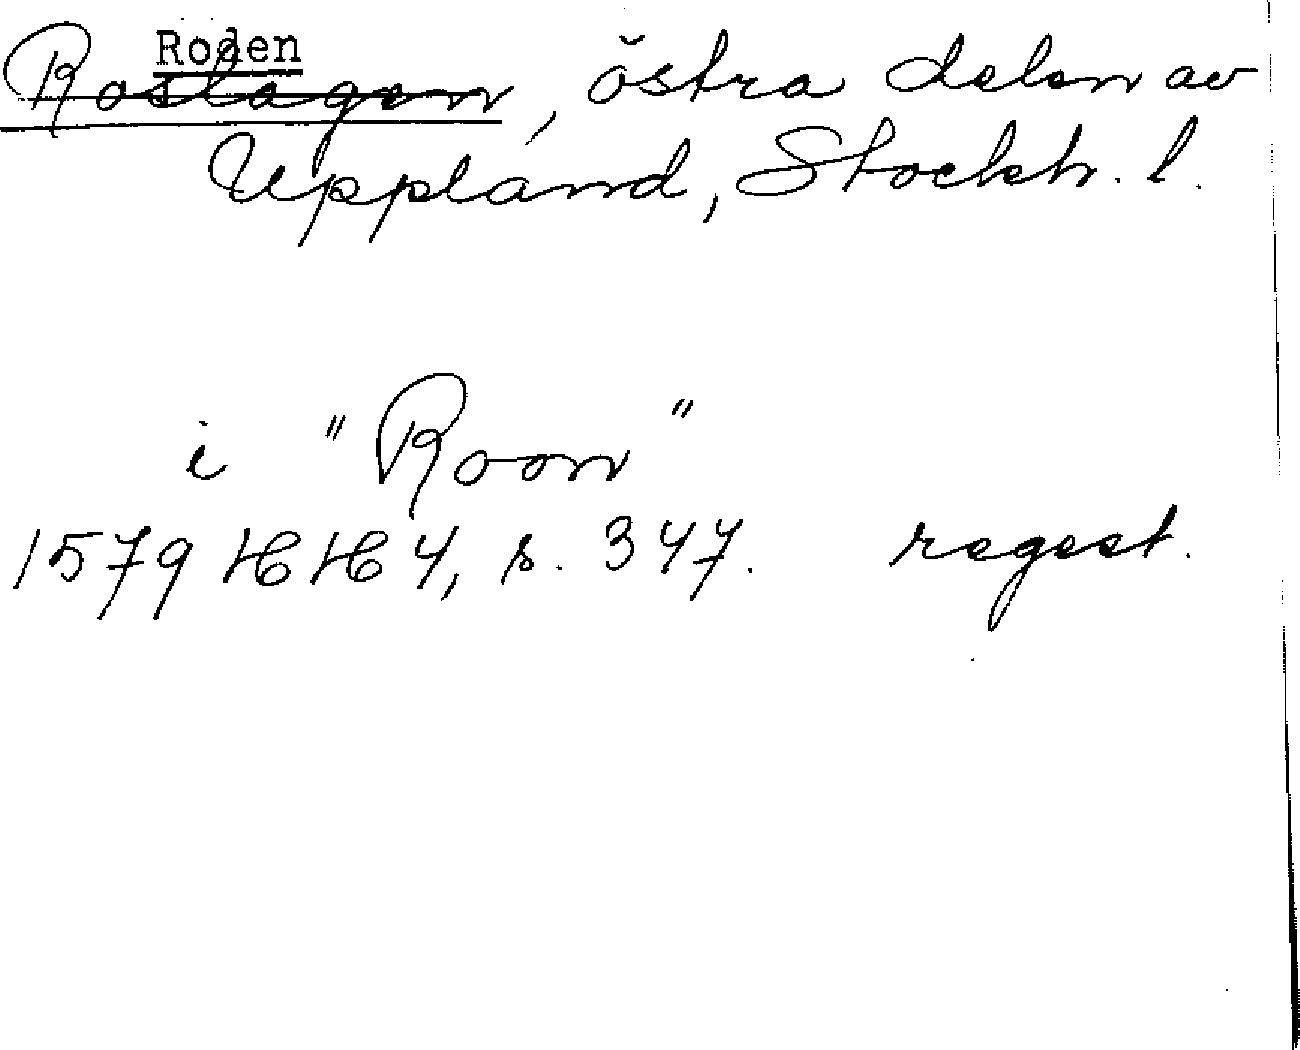 Roden
Roslagen, östra delen av
Uppland, Stockh. l.
i "Roon"
1579 HH 4, s. 347. regest.